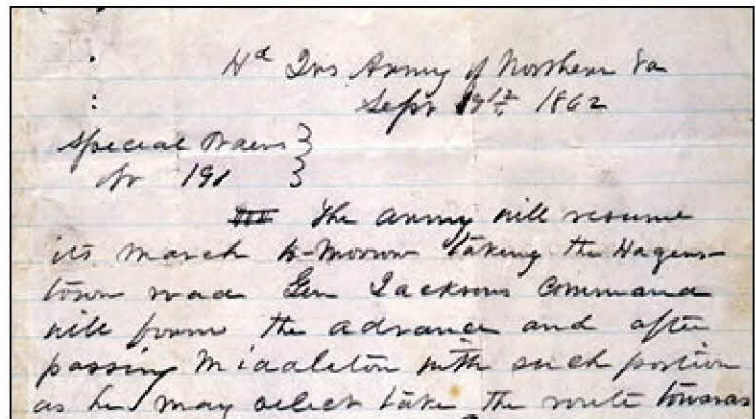 Hd Qrs Army of Northern Va
Sept 9th 1862
Special Orders }
No 191 }
III The Army will resume
its march to-morrow taking the Hagers-
town road Gen Jacksons Command
will form the advance and after
passing Middleton with such portion
as he may select take the route towards